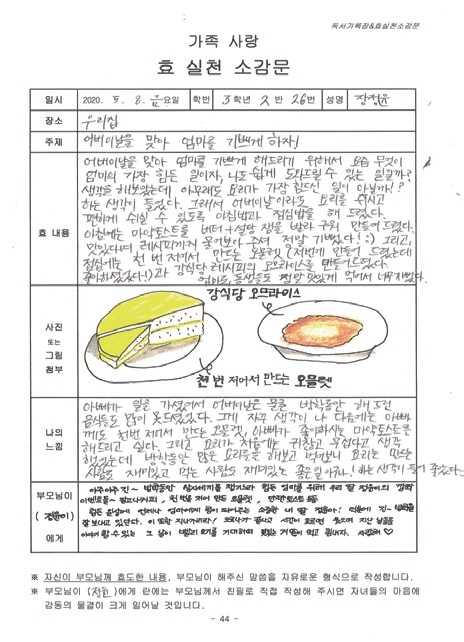 독서기록장&효실천소감문
가족 사랑
효 실천 소감문
일시 2020. 5. 8. 금요일 학번 3학년 2반 26번 성명 장정윤
장소 우리집
주제 어버이날을 맞아 엄마를 기쁘게 하자!
효 내용
어버이날을 맞아 엄마를 기쁘게 해드리기 위해서 요즘 무엇이
엄마의 가장 힘든 일이자, 나도 쉽게 도와드릴 수 있는 일일까?
생각을 해보았는데 아무래도 요리가 가장 힘드신 일이 아닐까!?
하는 생각이 들었다. 그래서 어버이날 이라도 요리를 쉬시고
편하게 쉬실 수 있도록 아침밥과 점심밥을 해 드렸다.
아침에는 마약토스트를 버터+설탕 잼을 발라 구워 만들어 드렸다.
맛있다며, 레시피까지 물어봐 주셔 정말 기뻤다!:) 그리고,
점심에는 천 번 저어서 만드는 오믈렛(저번에 만들어 드렸는데
좋아하셨었다!)과 강식당 레시피의 오므라이스를 만들어드렸다.
엄마도, 동생들도 정말 맛있게 먹어서 너무
사진
또는
그림
첨부
강식당 오므라이스
천 번 저어서 만드는 오믈렛
나의
느낌
아빠가 일을 가셨어서 어버이날은 물론 방학동안 해 드린
음식들도 많이 못드셨었다. 그게 자꾸 생각이 나 다음에는 아빠
께도 천번 저어서 만드는 오믈렛, 아빠가 좋아하시는 마약토스트를
해드리고 싶다. 그리고 요리가 처음에는 귀찮고 무섭다고 생각
했었는데 방학동안 많은 요리들을 해보고 먹어보니 요리는 만드는
사람도 재미있고 먹는 사람도 재미있는 좋은 일이구나! 하는 생각이 들어 좋았다.
부모님이
(정윤이)
에게
아주아주 긴~ 방학동안 삼시세끼를 챙기느라 힘든 엄마를 위해 우리 딸 정윤이의 깜짝
이벤트들~ 천 번을 저어 만든 오믈렛,
힘든 순간에 언제나 엄마에게 힘이 되어주는 소중한 내 딸 정윤아! 덕분에 긴~ 방학을
잘 보내고 있단다. 이 또한 지나가리라! 코로나가 끝나고 지난 날들을
이야기 할 수 있는 그 날이 빨리 오기를 기대하며 힘내자. 사랑해♡
※ 자신이 부모님께 효도한 내용, 부모님이 해주신 말씀을 자유로운 형식으로 작성합니다.
※ 부모님이 (정윤)에게 란에는 부모님께서 친필로 직접 작성해 주시면 자녀들의 마음에
감동의 물결이 크게 일어날 것입니다.
- 44 -